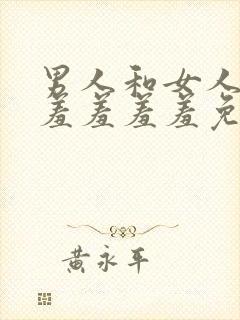 男人和女人
羞羞羞羞免
黄永平